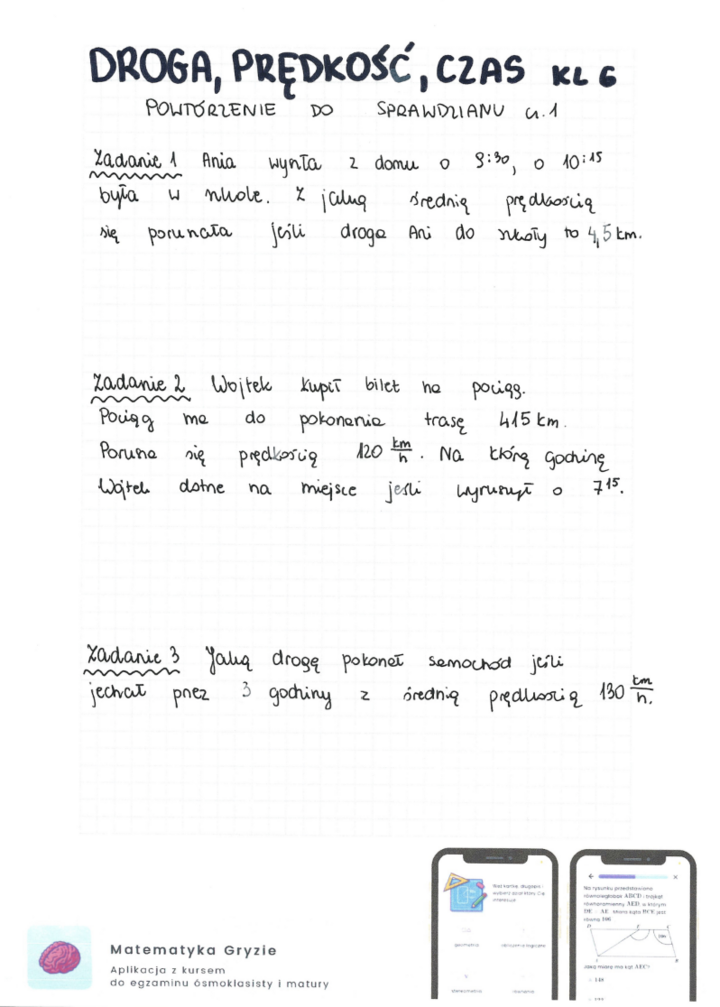 DROGA, PRĘDKOŚĆ, CZAS KL 6
POWTÓRZENIE DO SPRAWDZIANU cz. 1
Zadanie 1 Ania wyszła z domu o 9:30, o 10:15
była w szkole. Z jaką średnią prędkością
się poruszała jeśli droga Ani do szkoły to 4,5 km.
Zadanie 2 Wojtek kupił bilet na pociąg.
Pociąg ma do pokonania trasę 415 km.
Porusza się prędkością 120 km/h. Na którą godzinę
Wojtek dotrze na miejsce jeśli wyruszył o 7¹⁵.
Zadanie 3 Jaką drogę pokonał samochód jeśli
jechał przez 3 godziny z średnią prędkością 130 km/h.
Matematyka Gryzie
Aplikacja z kursem
do egzaminu ósmoklasisty i matury
Na rysunku przedstawiono
równoległobok ABCD i trójkąt
równoramienny AED, w którym